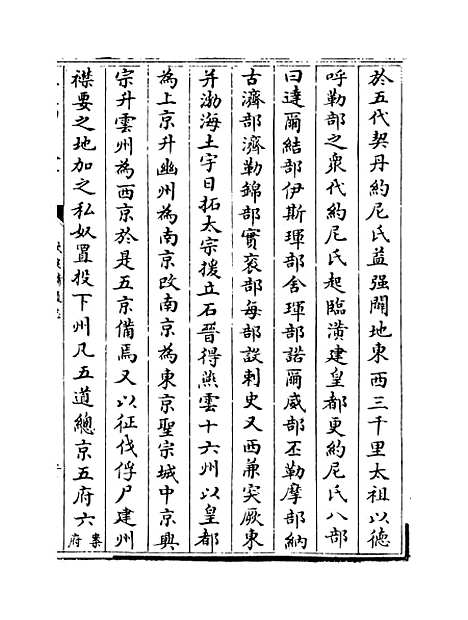 於五代契丹約尼氏益强闢地東西三千里太祖以德
呼勒部之衆代約尼氏起臨潢建皇都更約尼氏八部
曰達爾結部伊斯琿部舍琿部諾爾威部丕勒摩部納
古濟部濟勒錦部實袞部每部設刺史又西兼突厥東
并渤海土宇日拓太宗援立石晉得燕雲十六州以皇都
為上京升幽州為南京改南京為東京聖宗城中京興
宗升雲州為西京於是五京備焉又以征伐俘户建州
襟要之地加之私奴置投下州凡五道總京五府六案
府